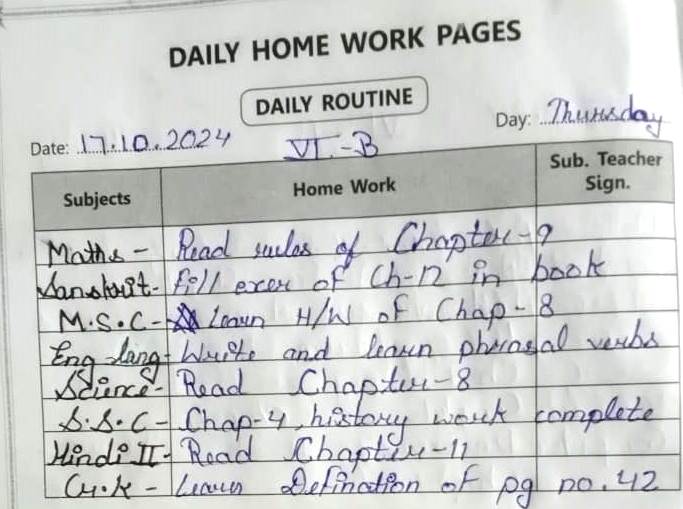 DAILY HOME WORK PAGES
DAILY ROUTINE
Date: 17.10.2024 VI-B Day: Thursday
Subjects Home Work Sub. Teacher Sign.
Maths - Read rules of Chapter-9
Sanskrit - fill exer of Ch-12 in book
M.S.C - Learn H/W of Chap-8
Eng lang - Write and learn phrasal verbs
Science - Read Chapter-8
S.S.C - Chap-4, history work complete
Hindi II - Read Chapter-11
G.K - Learn Defination of pg no. 42